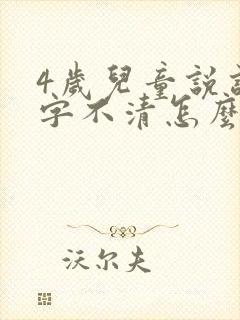 4歲兒童說話
字不清怎麼
沃尔夫